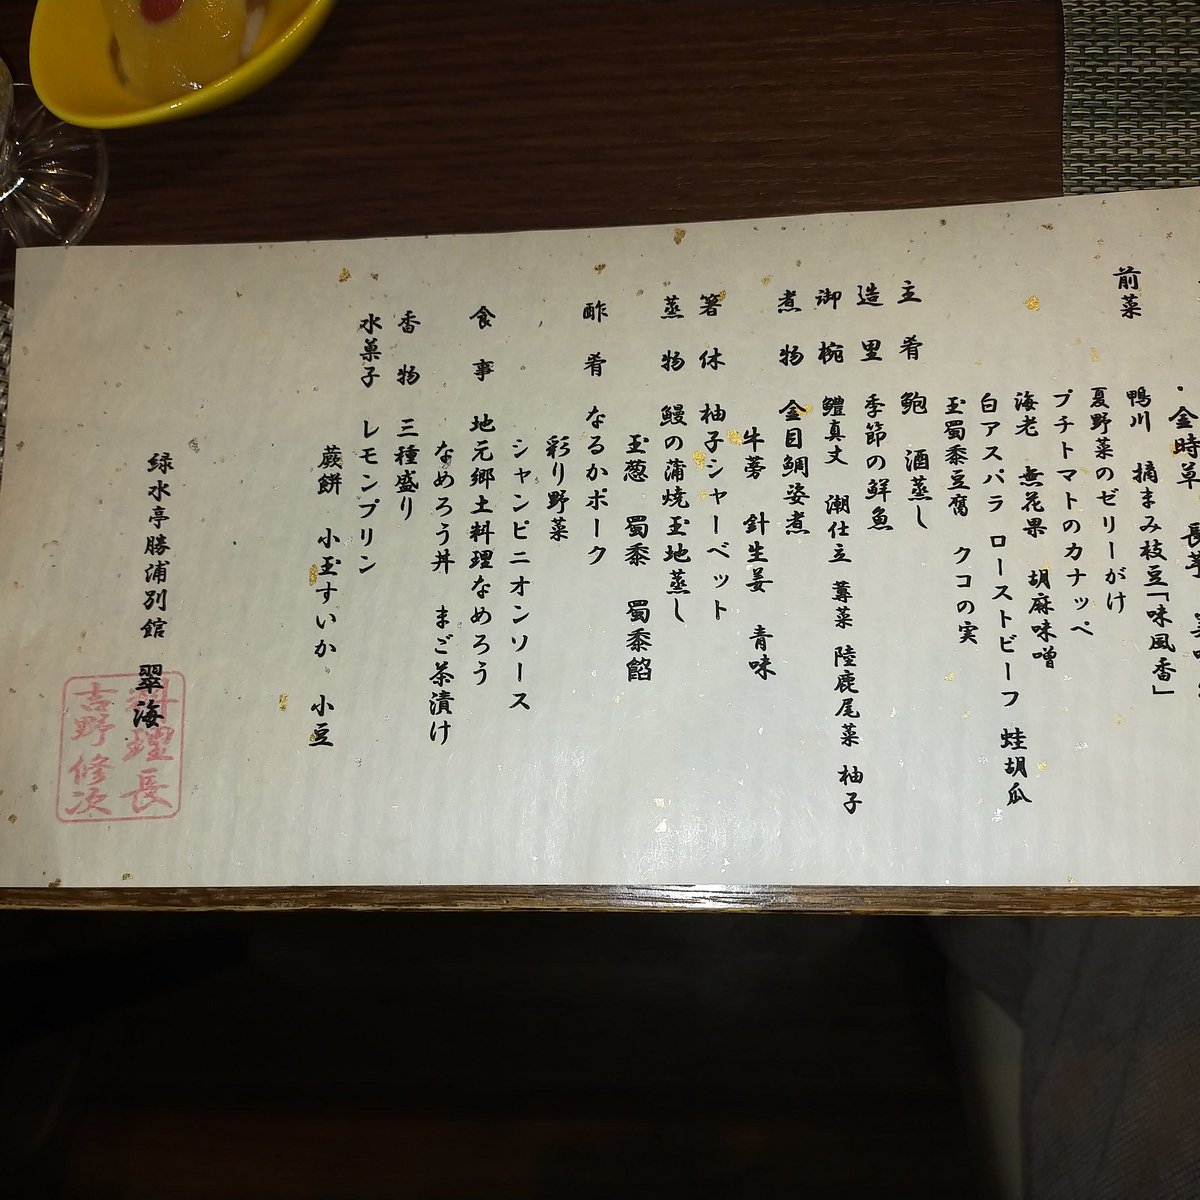 前菜
・金時草 長芋
鴨川 摘まみ枝豆「味風香」
夏野菜のゼリーがけ
プチトマトのカナッペ
海老 無花果 胡麻味噌
白アスパラ ローストビーフ 蛙胡瓜
玉蜀黍豆腐 クコの実
主肴 鮑 酒蒸し
造里 季節の鮮魚
御椀 鱧真丈 潮仕立 蓴菜 陸鹿尾菜 柚子
煮物 金目鯛姿煮
牛蒡 針生姜 青味
箸休 柚子シャーベット
蒸物 鰻の蒲焼玉地蒸し
玉葱 蜀黍 蜀黍餡
酢肴 なるかポーク
彩り野菜
シャンピニオンソース
食事 地元郷土料理なめろう
なめろう丼 まご茶漬け
香物 三種盛り
水菓子 レモンプリン
蕨餅 小玉すいか 小豆
緑水亭勝浦別館 翠海
料理長
吉野修次